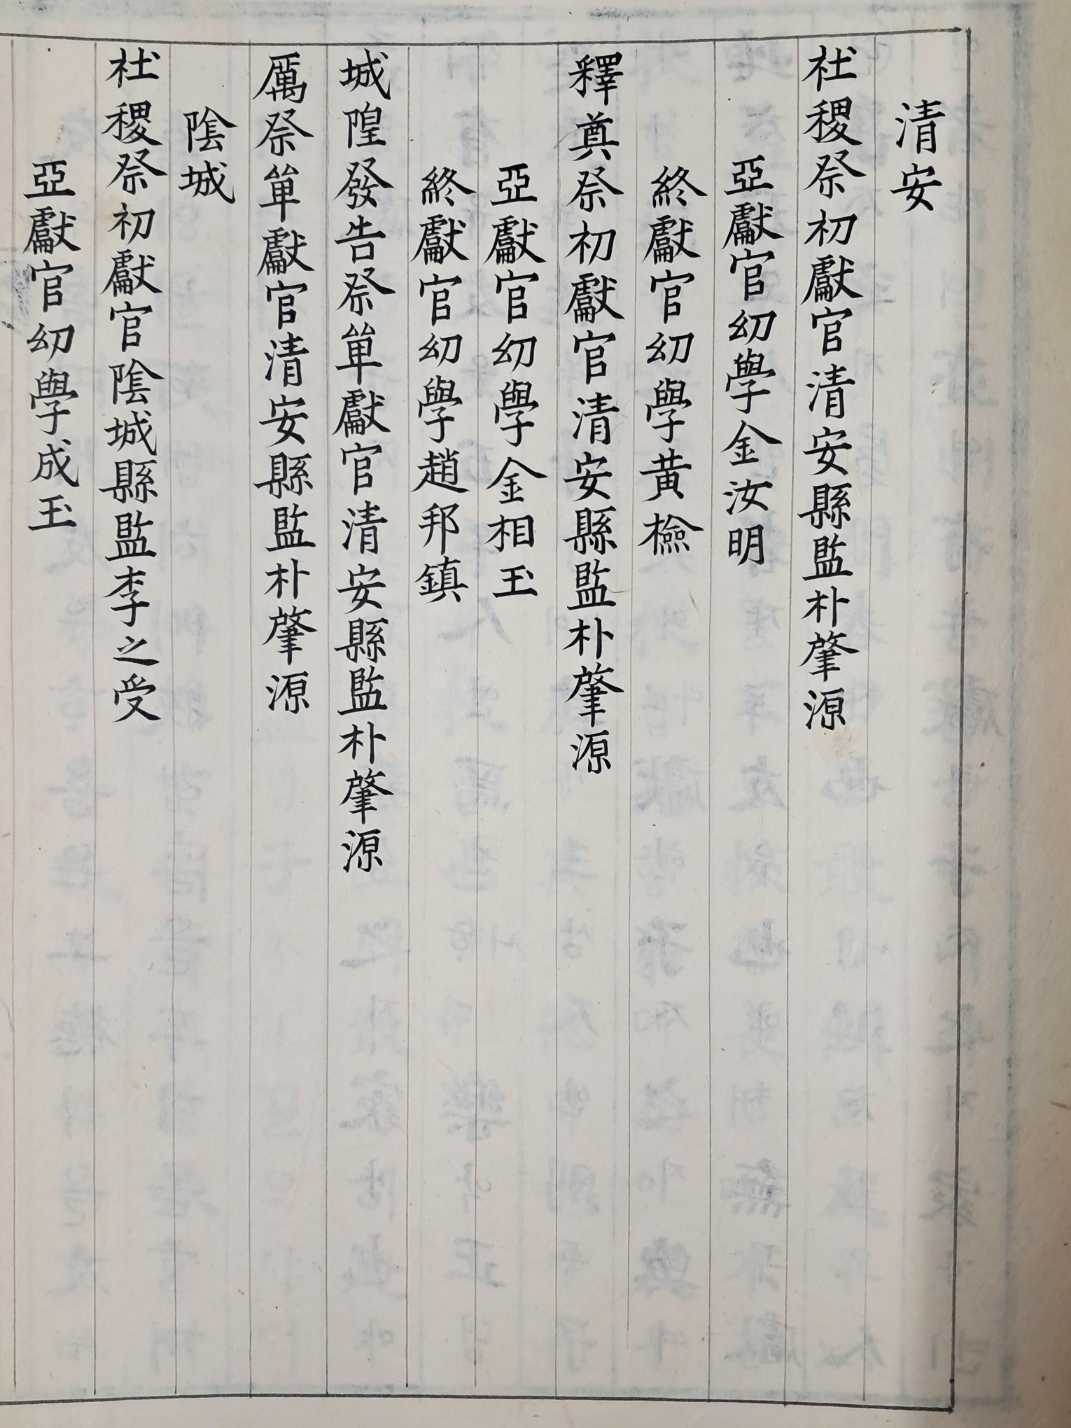 清安
社稷祭初獻官清安縣監朴肇源
亞獻官幼學金汝明
終獻官幼學黃檢
釋奠祭初獻官清安縣監朴肇源
亞獻官幼學金相玉
終獻官幼學趙邦鎮
城隍發告祭單獻官清安縣監朴肇源
厲祭單獻官清安縣監朴肇源
陰城
社稷祭初獻官陰城縣監李之受
亞獻官幼學成玉